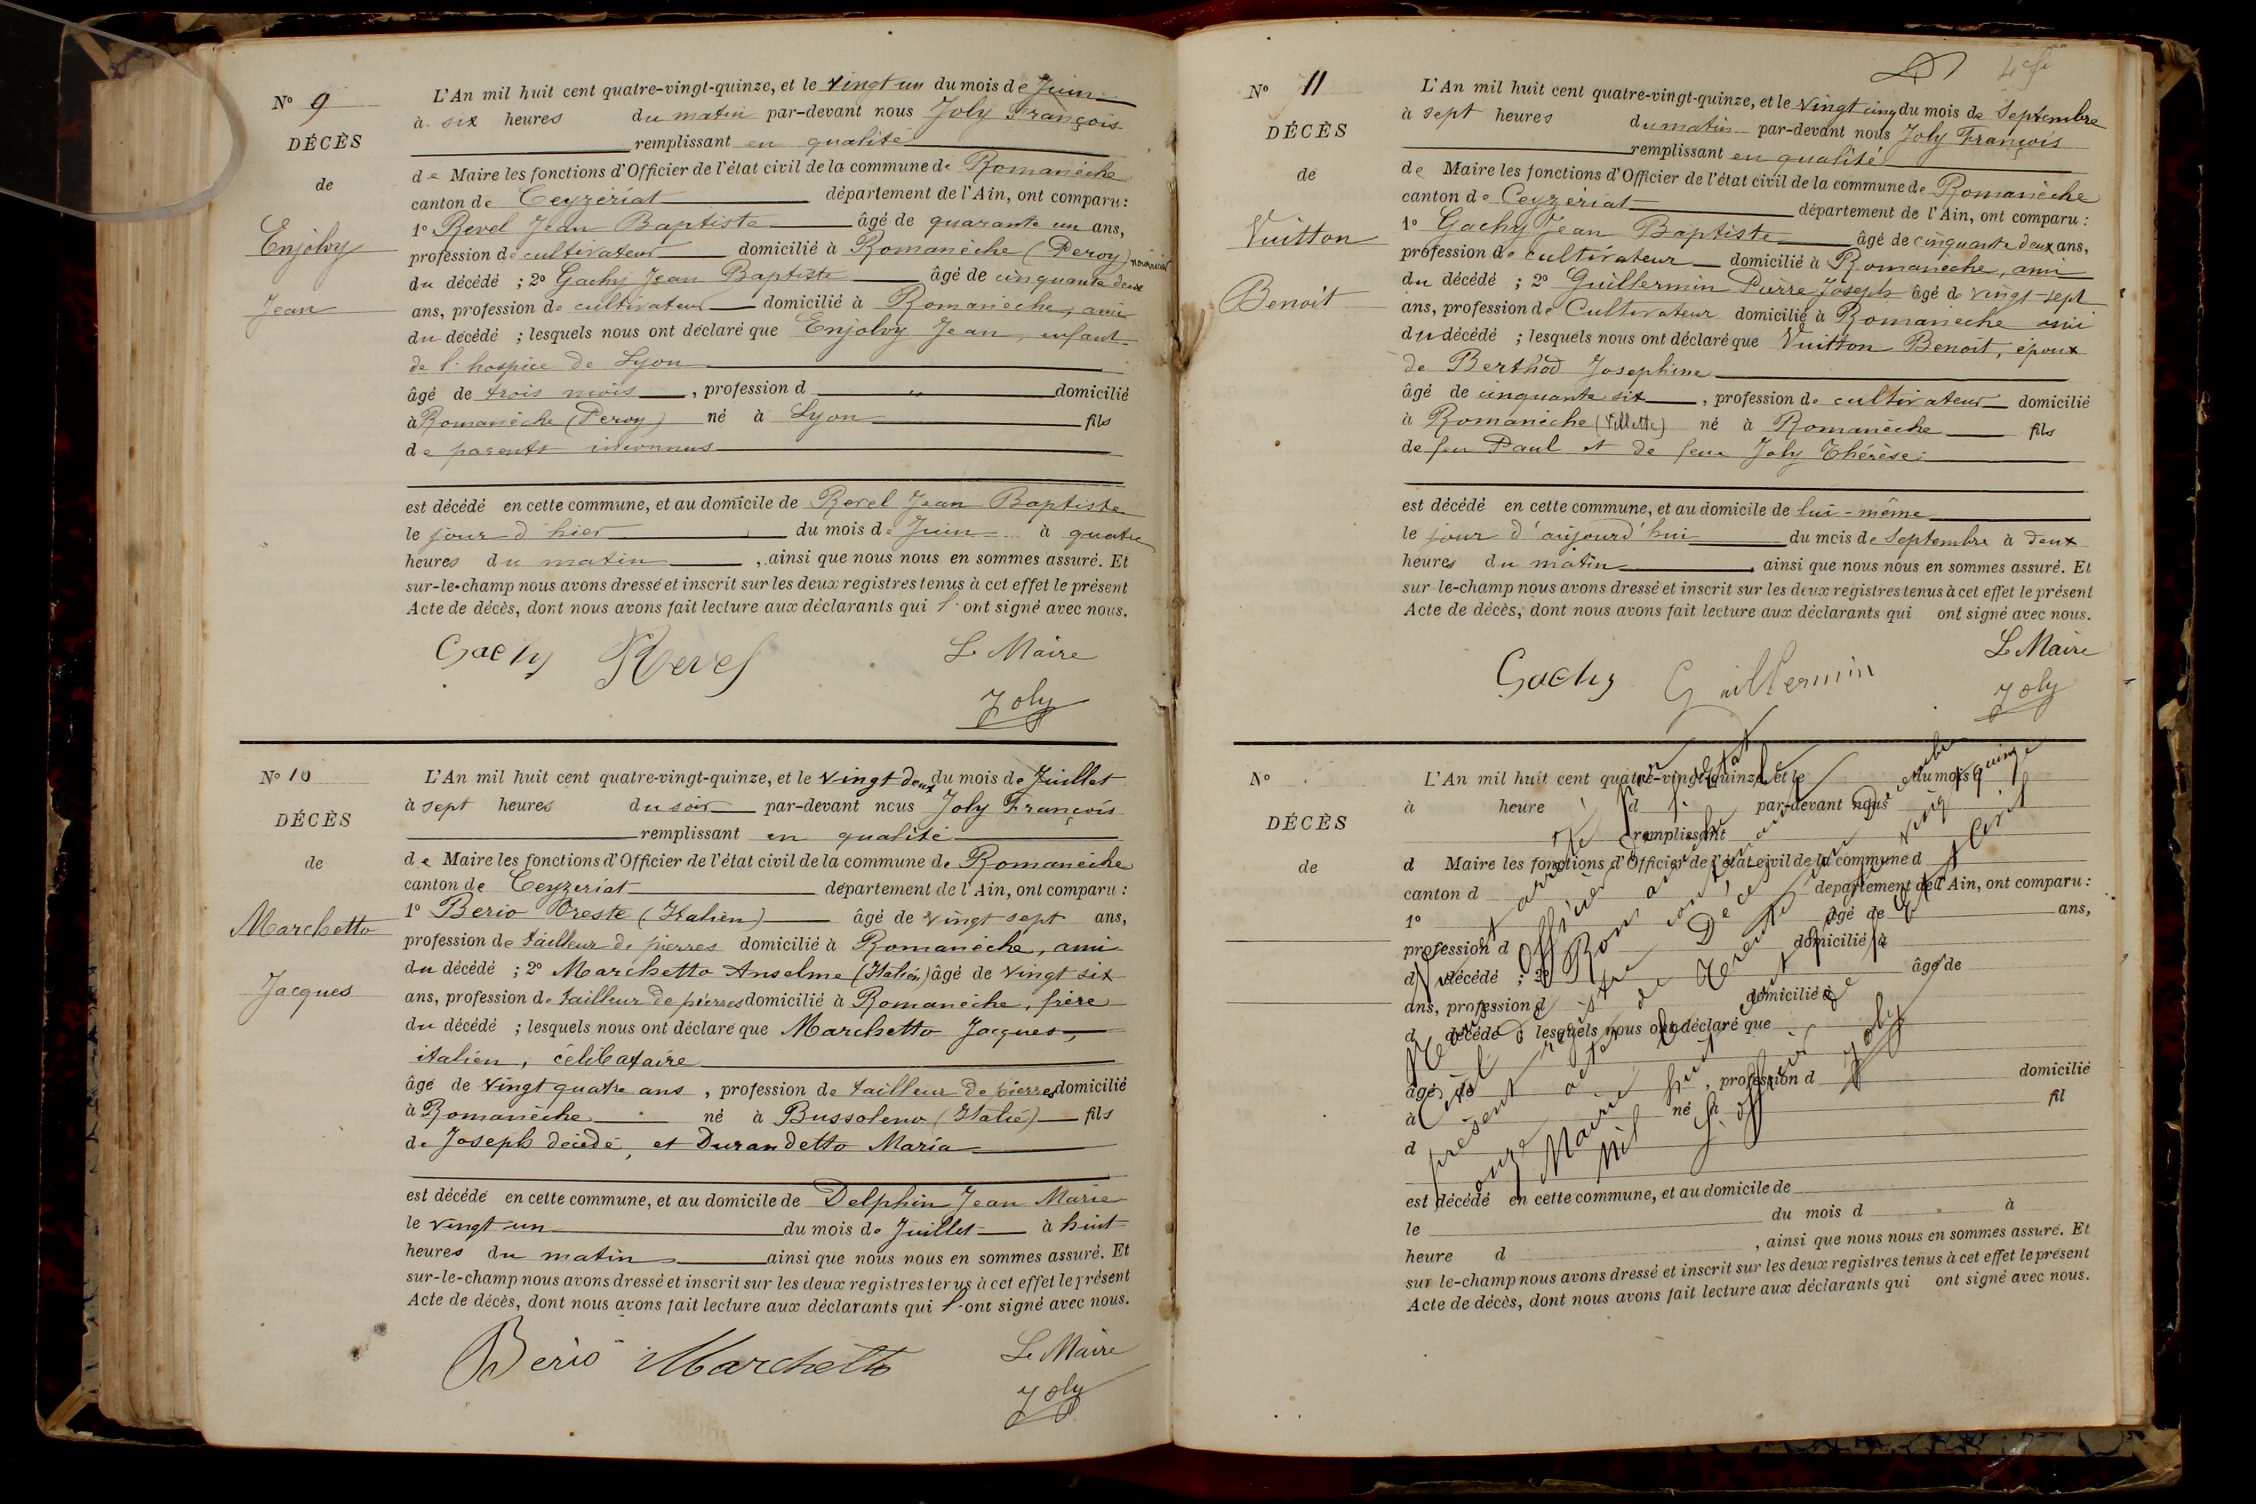 N° 9
DÉCÈS
de
Enjolvy
Jean
L'An mil huit cent quatre-vingt-quinze, et le vingt un du mois de Juin
à six heures du matin par-devant nous Joly François
remplissant en qualité
de Maire les fonctions d'Officier de l'état civil de la commune de Romanèche
canton de Ceyzériat département de l'Ain, ont comparu :
1° Revel Jean Baptiste âgé de quarante un ans,
profession de cultivateur domicilié à Romanèche (Peroy) nourricier
du décédé ; 2° Gachy Jean Baptiste âgé de cinquante deux
ans, profession de cultivateur domicilié à Romanèche, ami
du décédé ; lesquels nous ont déclaré que Enjolvy Jean, enfant
de l'hospice de Lyon
âgé de trois mois, profession d " domicilié
à Romanèche (Peroy) né à Lyon fils
de parents inconnus
est décédé en cette commune, et au domicile de Revel Jean Baptiste
le jour d'hier du mois de Juin à quatre
heures du matin, ainsi que nous nous en sommes assuré. Et
sur-le-champ nous avons dressé et inscrit sur les deux registres tenus à cet effet le présent
Acte de décès, dont nous avons fait lecture aux déclarants qui l'ont signé avec nous.
Gachy Revel Le Maire
Joly
N° 10
DÉCÈS
de
Marchetto
Jacques
L'An mil huit cent quatre-vingt-quinze, et le vingt deux du mois de Juillet
à sept heures du soir par-devant nous Joly François
remplissant en qualité
de Maire les fonctions d'Officier de l'état civil de la commune de Romanèche
canton de Ceyzeriat département de l'Ain, ont comparu :
1° Berio Oreste (Italien) âgé de vingt sept ans,
profession de tailleur de pierres domicilié à Romanèche, ami
du décédé ; 2° Marchetto Anselme (Italien) âgé de vingt six
ans, profession de tailleur de pierres domicilié à Romanèche, frère
du décédé ; lesquels nous ont déclaré que Marchetto Jacques,
italien, célibataire
âgé de vingt quatre ans, profession de tailleur de pierres domicilié
à Romanèche né à Bussoleno (Italie) fils
de Joseph décédé, et Durandetto Maria
est décédé en cette commune, et au domicile de Delphin Jean Marie
le vingt un du mois de Juillet à huit
heures du matin ainsi que nous nous en sommes assuré. Et
sur-le-champ nous avons dressé et inscrit sur les deux registres tenus à cet effet le présent
Acte de décès, dont nous avons fait lecture aux déclarants qui l'ont signé avec nous.
Berio Marchetto Le Maire
Joly
N° 11
DÉCÈS
de
Vuitton
Benoit
L'An mil huit cent quatre-vingt-quinze, et le vingt cinq du mois de Septembre
à sept heures du matin par-devant nous Joly François
remplissant en qualité
de Maire les fonctions d'Officier de l'état civil de la commune de Romanèche
canton de Ceyzériat département de l'Ain, ont comparu :
1° Gachy Jean Baptiste âgé de cinquante deux ans,
profession de cultivateur domicilié à Romanèche, ami
du décédé ; 2° Guillermin Pierre Joseph âgé de vingt-sept
ans, profession de Cultivateur domicilié à Romanèche ami
du décédé ; lesquels nous ont déclaré que Vuitton Benoit, époux
de Berthod Josephine
âgé de cinquante six, profession de cultivateur domicilié
à Romanèche (Villette) né à Romanèche fils
de feu Paul et de feue Joly Thérèse
est décédé en cette commune, et au domicile de lui-même
le jour d'aujourd'hui du mois de Septembre à deux
heures du matin, ainsi que nous nous en sommes assuré. Et
sur-le-champ nous avons dressé et inscrit sur les deux registres tenus à cet effet le présent
Acte de décès, dont nous avons fait lecture aux déclarants qui ont signé avec nous.
Gachy Guillermin Le Maire
Joly
N°
DÉCÈS
de
L'An mil huit cent quatre-vingt-quinze, et le du mois d
à heure d par-devant nous
remplissant
d Maire les fonctions d'Officier de l'état civil de la commune d
canton d département de l'Ain, ont comparu :
1° âgé de ans,
profession d domicilié à
d décédé ; 2° âgé de
ans, profession d domicilié à
d décédé ; lesquels nous ont déclaré que
âgé de , profession d domicilié
à né à fil
d
est décédé en cette commune, et au domicile de
le du mois d à
heure d , ainsi que nous nous en sommes assuré. Et
sur-le-champ nous avons dressé et inscrit sur les deux registres tenus à cet effet le présent
Acte de décès, dont nous avons fait lecture aux déclarants qui ont signé avec nous.
Vu et arrêté par
Officier de l'état
Civil de Romanèche le
présent registre contenant
onze actes de Décès
Mairie le trente un Décembre
mil huit cent quatre vingt quinze
L'officier de l'état Civil
Joly